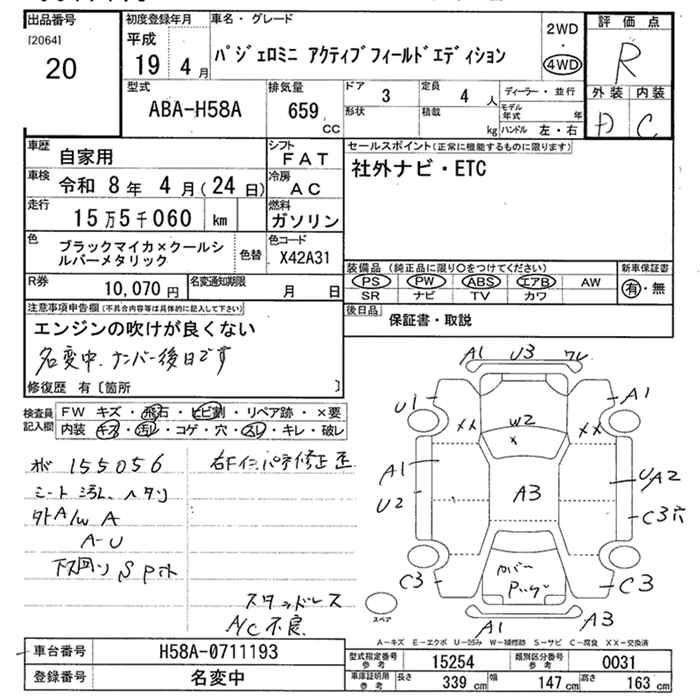 出品番号
[2064]
20
初度登録年月
平成
19 4 月
車名・グレード
パジェロミニ アクティブフィールドエディション
2WD
・
4WD
評価点
R
外装 内装
D C
型式
ABA-H58A
排気量
659
CC
ドア
3
形状
定員
4 人
積載
kg
ディーラー・並行
モデル年式 年
ハンドル 左・右
車歴
自家用
シフト
FAT
車検
令和 8 年 4 月 (24 日)
冷房
AC
走行
15万5千060 km
燃料
ガソリン
色
ブラックマイカ×クールシ
ルバーメタリック
色替
色コード
X42A31
R券
10,070 円
名変通知期限
月 日
セールスポイント(正常に機能するものに限ります)
社外ナビ・ETC
装備品 (純正品に限り○をつけてください)
PS PW ABS エアB AW
SR ナビ TV カワ
新車保証書
有・無
後日品
保証書・取説
注意事項申告欄(不具合内容等は具体的に記入して下さい)
エンジンの吹けが良くない
名変中.ナンバー後日です
修復歴 有〔箇所 〕
検査員
記入欄
FW キズ・飛石・ヒビ割・リペア跡・×要
内装 キズ・汚レ・コゲ・穴・スレ・キレ・破レ
155056
シート汚れ、ヘタリ
外A/W A
A-U
下回り S P
スタッドレス
A/C不良
A1 U3 ワレ
U1 A1
XX W2 XX
X
A1 UA2
U2 A3 C3穴
カバー
C3 C3
A1 A3
スペア
A-キズ E-エクボ U-凹み W-補修跡 S-サビ C-腐食 XX-交換済
車台番号
H58A-0711193
登録番号
名変中
型式指定番号
参考
15254
類別区分番号
参考
0031
車庫証明用
参考
長さ 339 cm 幅 147 cm 高さ 163 cm